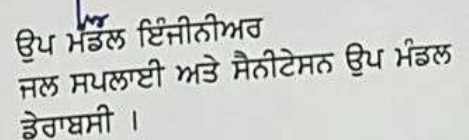 ਉਪ ਮੰਡਲ ਇੰਜੀਨੀਅਰ
ਜਲ ਸਪਲਾਈ ਅਤੇ ਸੈਨੀਟੇਸਨ ਉਪ ਮੰਡਲ
ਡੇਰਾਬਸੀ ।